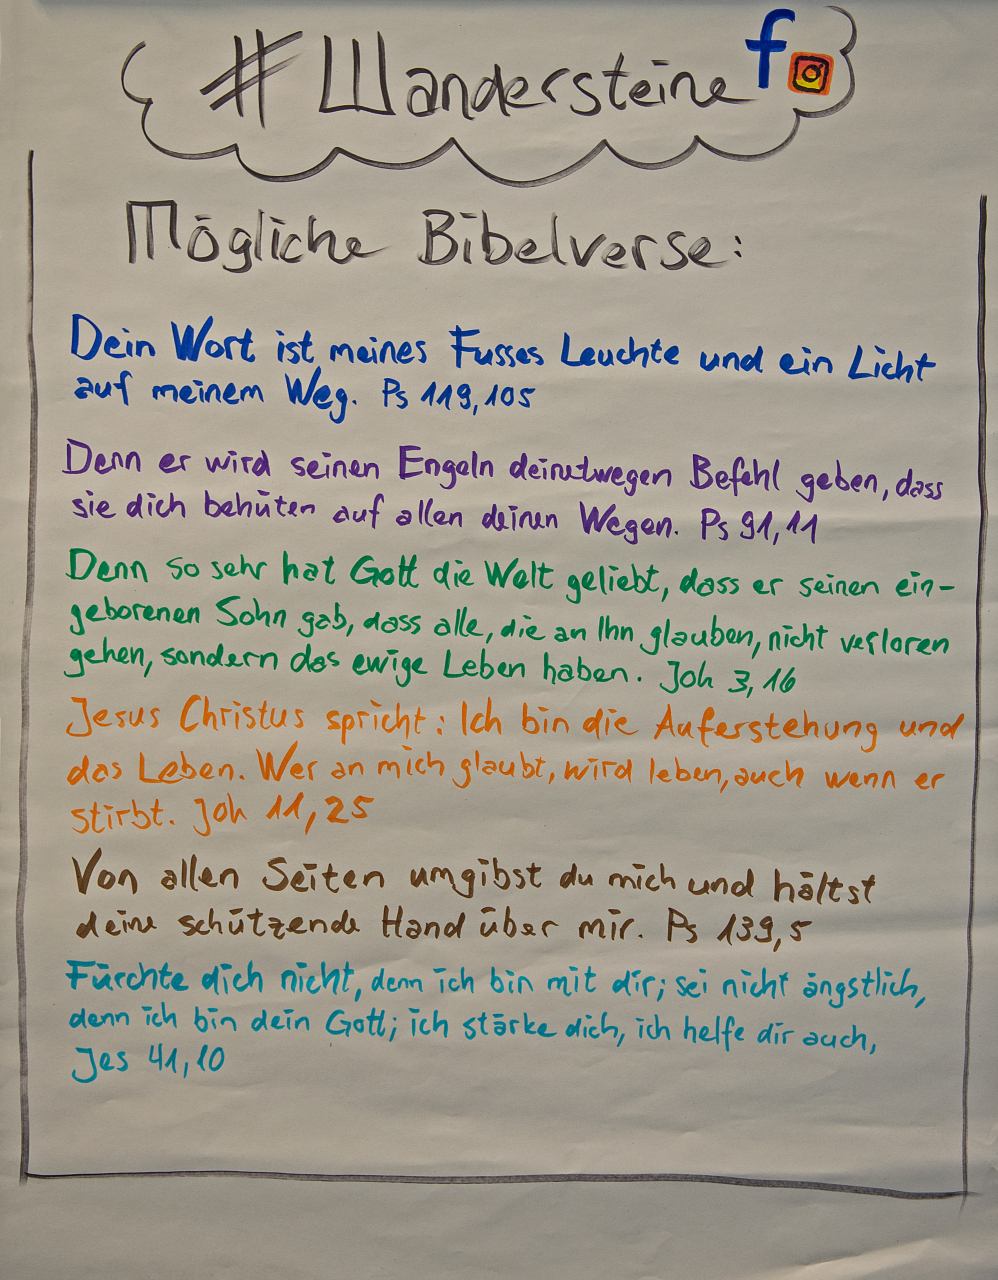 #Wandersteine f
Mögliche Bibelverse:
Dein Wort ist meines Fusses Leuchte und ein Licht
auf meinem Weg. Ps 119,105
Denn er wird seinen Engeln deinetwegen Befehl geben, dass
sie dich behüten auf allen deinen Wegen. Ps 91,11
Denn so sehr hat Gott die Welt geliebt, dass er seinen ein-
geborenen Sohn gab, dass alle, die an Ihn glauben, nicht verloren
gehen, sondern das ewige Leben haben. Joh 3,16
Jesus Christus spricht: Ich bin die Auferstehung und
das Leben. Wer an mich glaubt, wird leben, auch wenn er
stirbt. Joh 11,25
Von allen Seiten umgibst du mich und hältst
deine schützende Hand über mir. Ps 139,5
Fürchte dich nicht, denn ich bin mit dir; sei nicht ängstlich,
denn ich bin dein Gott; ich stärke dich, ich helfe dir auch,
Jes 41,10